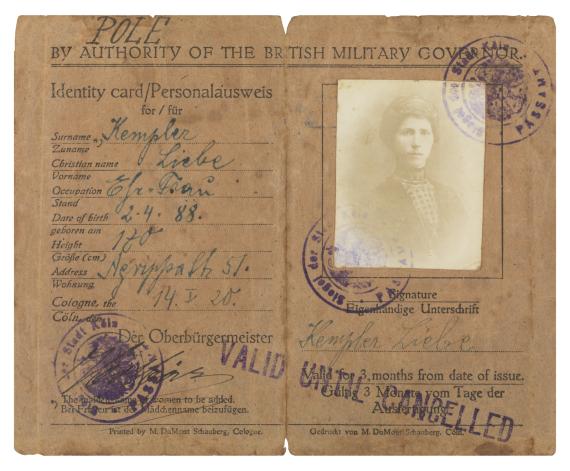 POLE
BY AUTHORITY OF THE BRITISH MILITARY GOVERNOR.
Identity card/Personalausweis
for / für
Surname Kempler
Zuname
Christian name Liebe
Vorname
Occupation Ehr. Frau
Stand
Date of birth 2.4. 88.
geboren am
Height 170
Größe (cm)
Address 51.
Wohnung
Cologne, the 14. V 20.
Cöln, den
Der Oberbürgermeister
The maiden name of women to be added.
Bei Frauen ist der Mädchenname beizufügen.
Printed by M. DuMont Schauberg, Cologne.
Siegel der Stadt Köln
PASSAMT
Siegel der Stadt Köln
PASSAMT
Siegel der Stadt
PASSAMT
Signature
Eigenhändige Unterschrift
Kempler Liebe
Valid for 3 months from date of issue.
Gültig 3 Monate vom Tage der
Ausfertigung
VALID UNTIL CANCELLED
Gedruckt von M. DuMont Schauberg, Cöln.